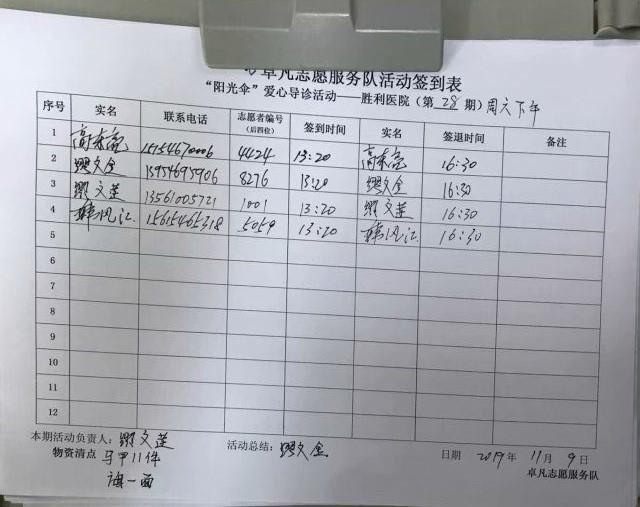 卓凡志愿服务队活动签到表
“阳光伞”爱心导诊活动——胜利医院（第 28 期）周六下午
序号 实名 联系电话 志愿者编号（后四位） 签到时间 实名 签退时间 备注
1 高东亮 15154670006 4424 13:20 高东亮 16:30
2 缪文全 13954695906 8276 13:20 缪文全 16:30
3 缪文莲 13561005721 1001 13:20 缪文莲 16:30
4 韩风江 15615465318 5059 13:20 韩风江 16:30
5
6
7
8
9
10
11
12
本期活动负责人：缪文莲 活动总结：缪文全 日期 2019年 11月 9日
物资清点 马甲11件 卓凡志愿服务队
旗一面